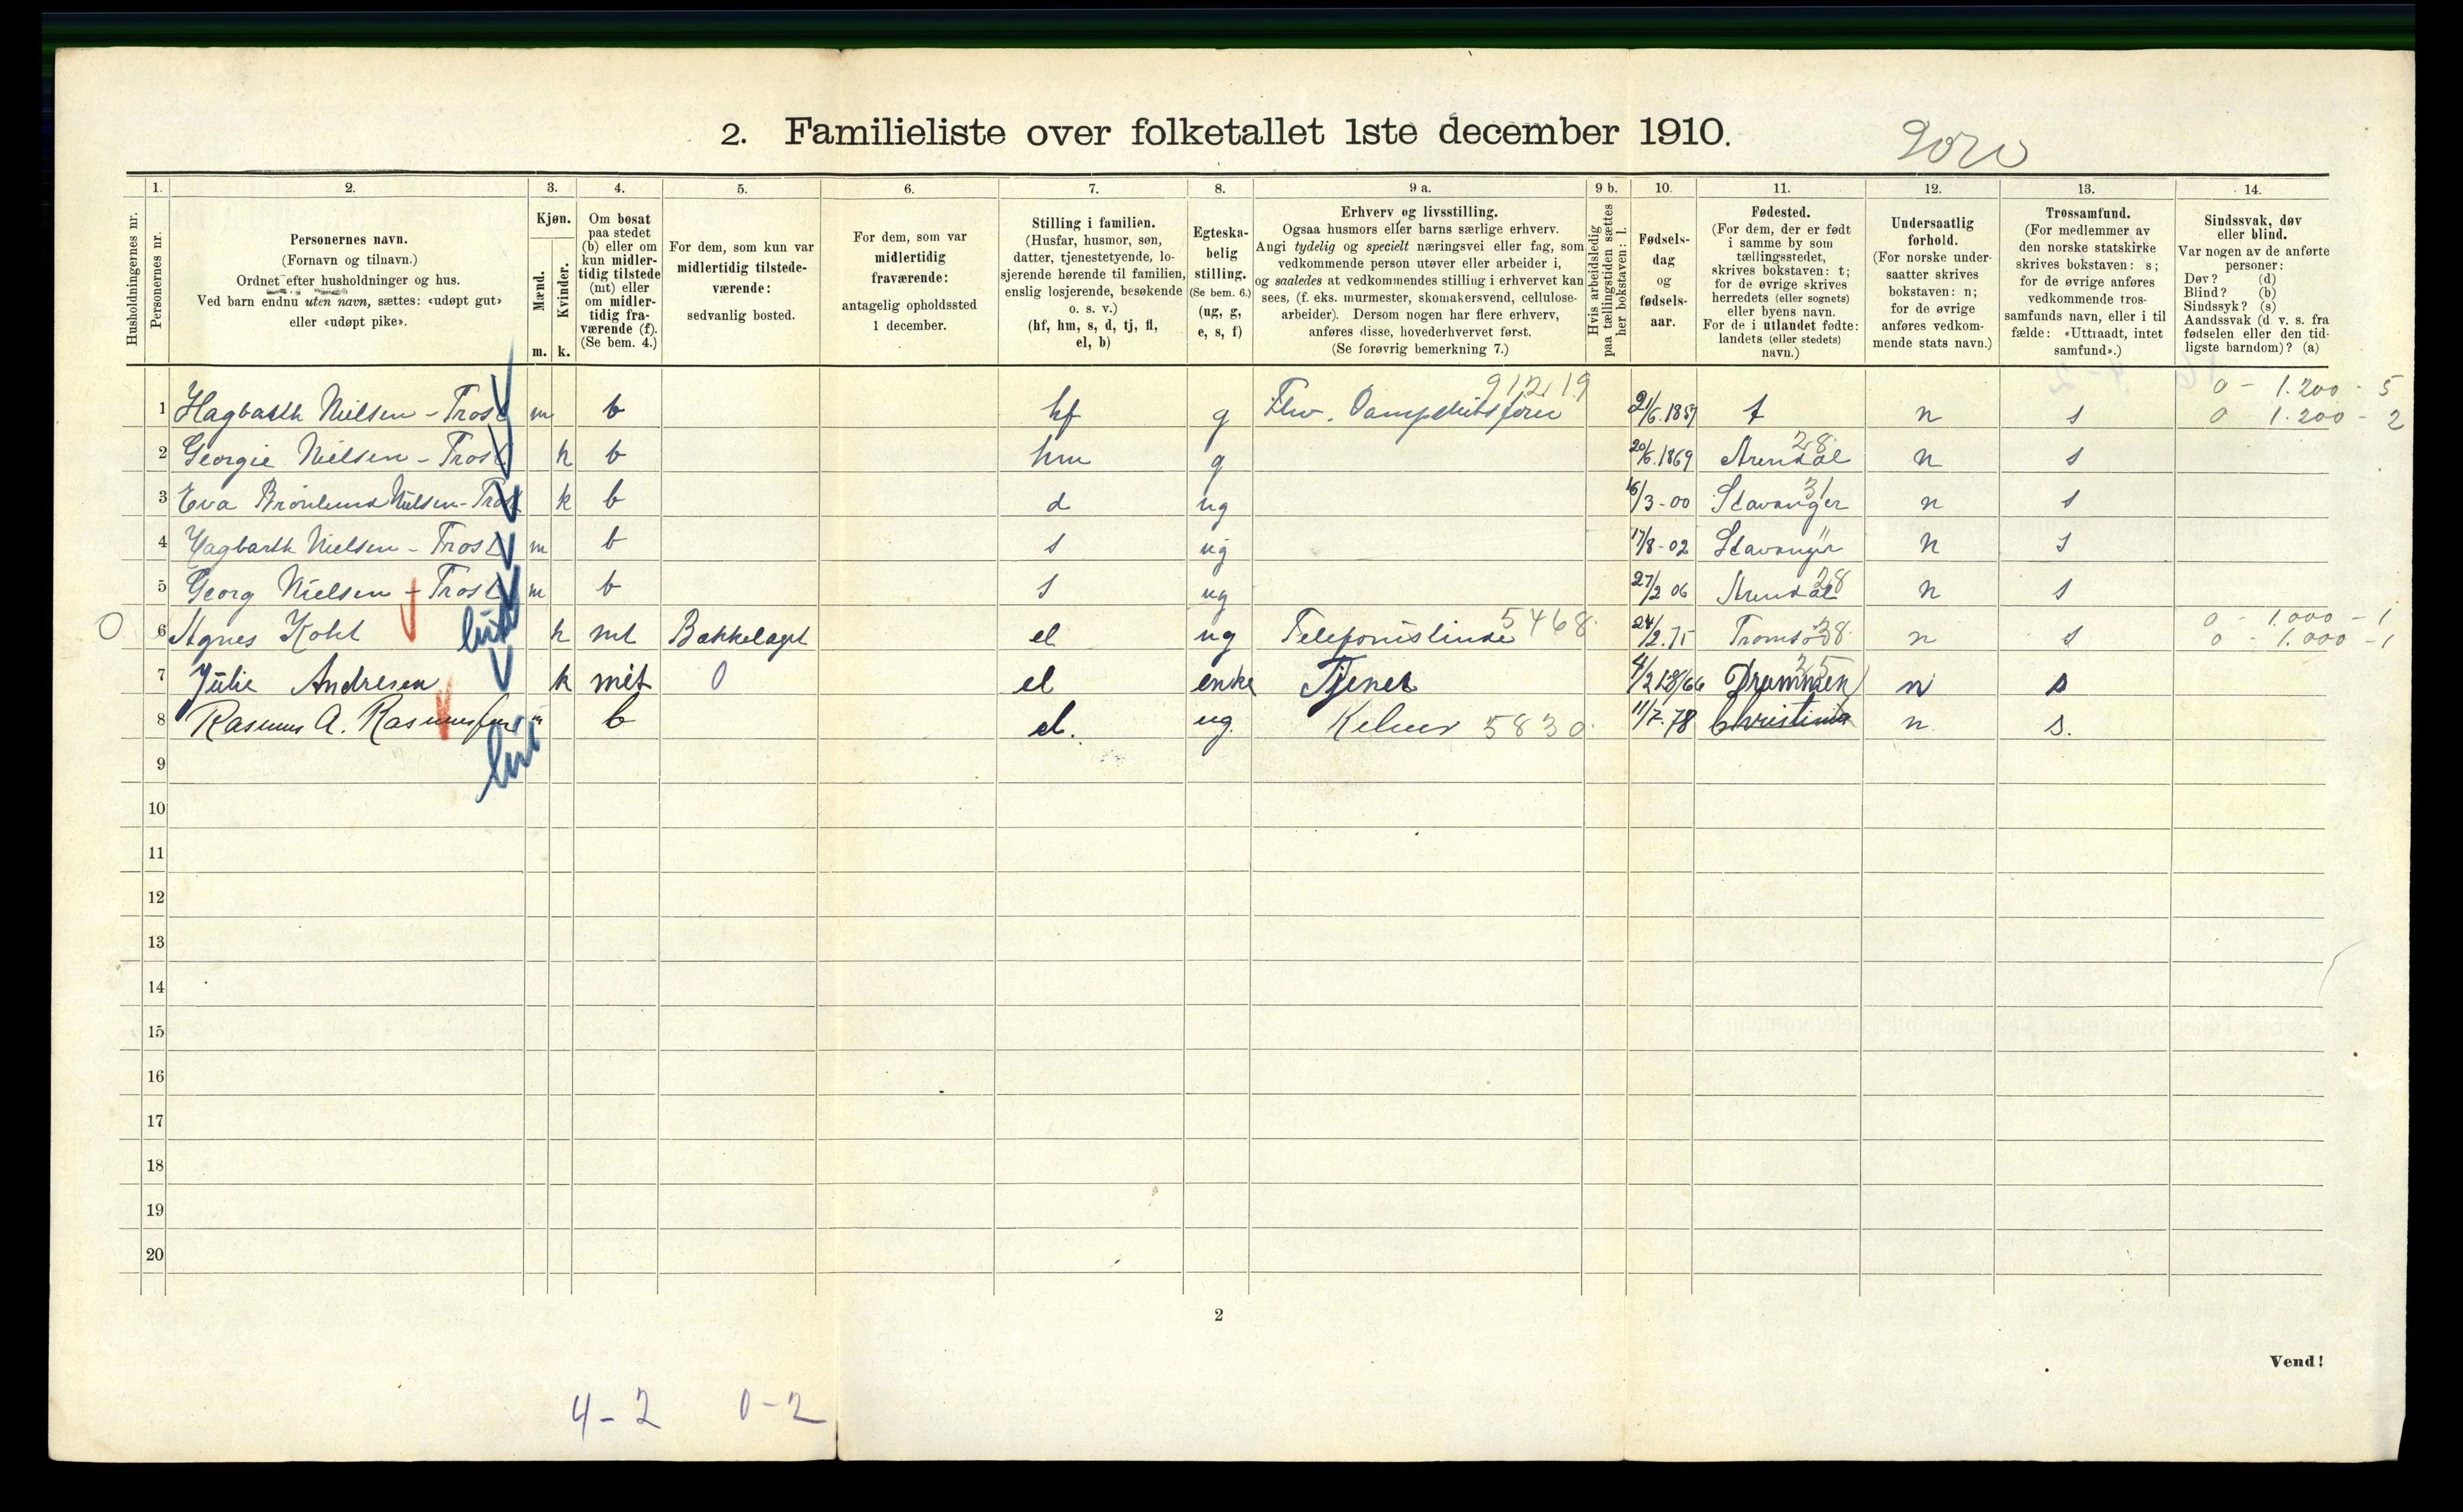 2. Familieliste over folketallet 1ste december 1910.
Husholdningernes nr.
1. Personernes nr.
2. Personernes navn.
(Fornavn og tilnavn.)
Ordnet efter husholdninger og hus.
Ved barn endnu uten navn, sættes: «udøpt gut»
eller «udøpt pike».
3. Kjøn.
Mænd. Kvinder.
m. k.
4. Om bosat
paa stedet
(b) eller om
kun midler-
tidig tilstede
(mt) eller
om midler-
tidig fra-
værende (f).
(Se bem. 4.)
5. For dem, som kun var
midlertidig tilstede-
værende:
sedvanlig bosted.
6. For dem, som var
midlertidig
fraværende:
antagelig opholdssted
1 december.
7. Stilling i familien.
(Husfar, husmor, søn,
datter, tjenestetyende, lo-
sjerende hørende til familien,
enslig losjerende, besøkende
o. s. v.)
(hf, hm, s, d, tj, fl,
el, b)
8. Egteska-
belig
stilling.
(Se bem. 6.)
(ug, g,
e, s, f)
9 a. Erhverv og livsstilling.
Ogsaa husmors eller barns særlige erhverv.
Angi tydelig og specielt næringsvei eller fag, som
vedkommende person utøver eller arbeider i,
og saaledes at vedkommendes stilling i erhvervet kan
sees, (f. eks. murmester, skomakersvend, cellulose-
arbeider). Dersom nogen har flere erhverv,
anføres disse, hovederhvervet først.
(Se forøvrig bemerkning 7.)
9 b. Hvis arbeidsledig
paa tællingstiden sættes
her bokstaven: l.
10. Fødsels-
dag
og
fødsels-
aar.
11. Fødested.
(For dem, der er født
i samme by som
tællingsstedet,
skrives bokstaven: t;
for de øvrige skrives
herredets (eller sognets)
eller byens navn.
For de i utlandet fødte:
landets (eller stedets)
navn.)
12. Undersaatlig
forhold.
(For norske under-
saatter skrives
bokstaven: n;
for de øvrige
anføres vedkom-
mende stats navn.)
13. Trossamfund.
(For medlemmer av
den norske statskirke
skrives bokstaven: s;
for de øvrige anføres
vedkommende tros-
samfunds navn, eller i til
fælde: «Uttraadt, intet
samfund».)
14. Sindssvak, døv
eller blind.
Var nogen av de anførte
personer:
Døv? (d)
Blind? (b)
Sindssyk? (s)
Aandssvak (d. v. s. fra
fødselen eller den tid-
ligste barndom)? (a)
91219 0 - 1.200 - 5
1 Hagbarth Nielsen - Trost m b hf g 21/6.1857 t n s 0 1.200 - 2
2 Georgie Nielsen - Trost k b hm g 20/6.1869 Arendal 28 n s
3 Eva Brönlund Nielsen-Trost k b d ug 16/3-00 Stavanger 31 n s
4 Hagbarth Nielsen - Trost m b s ug 17/8-02 Stavanger " n s
5 Georg Nielsen - Trost m b s ug 27/2 06 Arendal 28 n s
0 - 1.000 - 1
0 6 Agnes Kohl k mt Bækkelaget el ug Telefonistinde 5468 24/2.75 Tromsø 38 n s 0 - 1.000 - 1
7 Julie Andresen k mit 0 el enke Tjener 4/2 1866 Drammen 25 n s
8 Rasmus A. Rasmussen m b el. ug. Kelner 5830 11/7.78 Christinia n. s.
9
10
11
12
13
14
15
16
17
18
19
20
2
Vend!
4-2 0-2